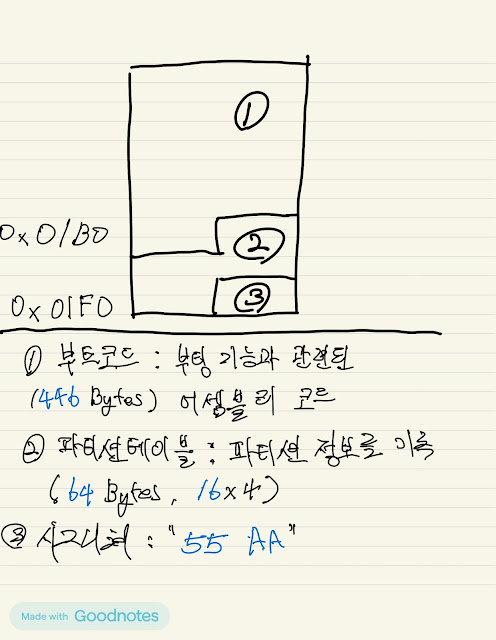 ①
0x01B0
②
0x01F0
③
① 부트코드 : 부팅 기능과 관련된
(446 Bytes) 어셈블리 코드
② 파티션테이블 : 파티션 정보를 기록
(64 Bytes, 16x4)
③ 시그니처 : "55 AA"
Made with Goodnotes